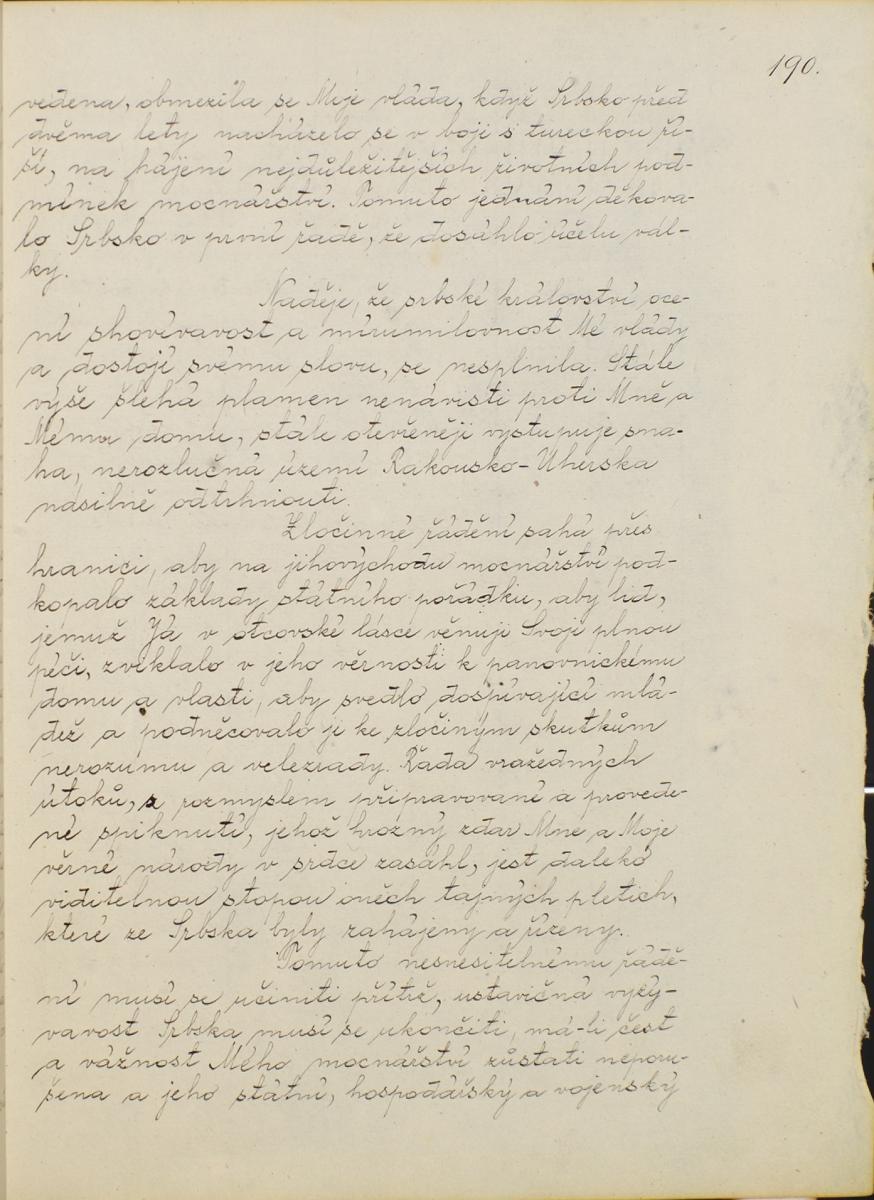 190.
vedena, obmezila se Moje vláda, když Srbsko před
dvěma lety nacházelo se v boji s tureckou ří-
ší, na hájení nejdůležitějších životních pod-
mínek mocnářství. Tomuto jednání děkova-
lo Srbsko v první řadě, že dosáhlo účelu vál-
ky.
Naděje, že srbské království oce-
ní shovívavost a mírumilovnost Mé vlády
a dostojí svému slovu, se nesplnila. Stále
výše šlehá plamen nenávisti proti Mně a
Mému domu, stále otevřeněji vystupuje sna-
ha, nerozlučná území Rakousko-Uherska
násilně odtrhnouti.
Zločinné řádění sahá přes
hranici, aby na jihovýchodu mocnářství pod-
kopalo základy státního pořádku, aby lid,
jemuž Já v otcovské lásce věnuji Svoji plnou
péči, zviklalo v jeho věrnosti k panovnickému
domu a vlasti, aby svedlo dospívající mlá-
dež a podněcovalo ji ke zločiným skutkům
nerozumu a velezrady. Řada vražedných
útoků, s rozmyslem připravované a provede-
né spiknutí, jehož hrozný zdar Mne a Moje
věrné národy v srdce zasáhl, jest daleko
viditelnou stopou oněch tajných pletich,
které ze Srbska byly zahájeny a řízeny.
Tomuto nesnesitelnému řádě-
ní musí se učiniti přítrž, ustavičná vyzý-
vavost Srbska musí se ukončiti, má-li čest
a vážnost Mého mocnářství zůstati neporu-
šena a jeho státní, hospodářský a vojenský